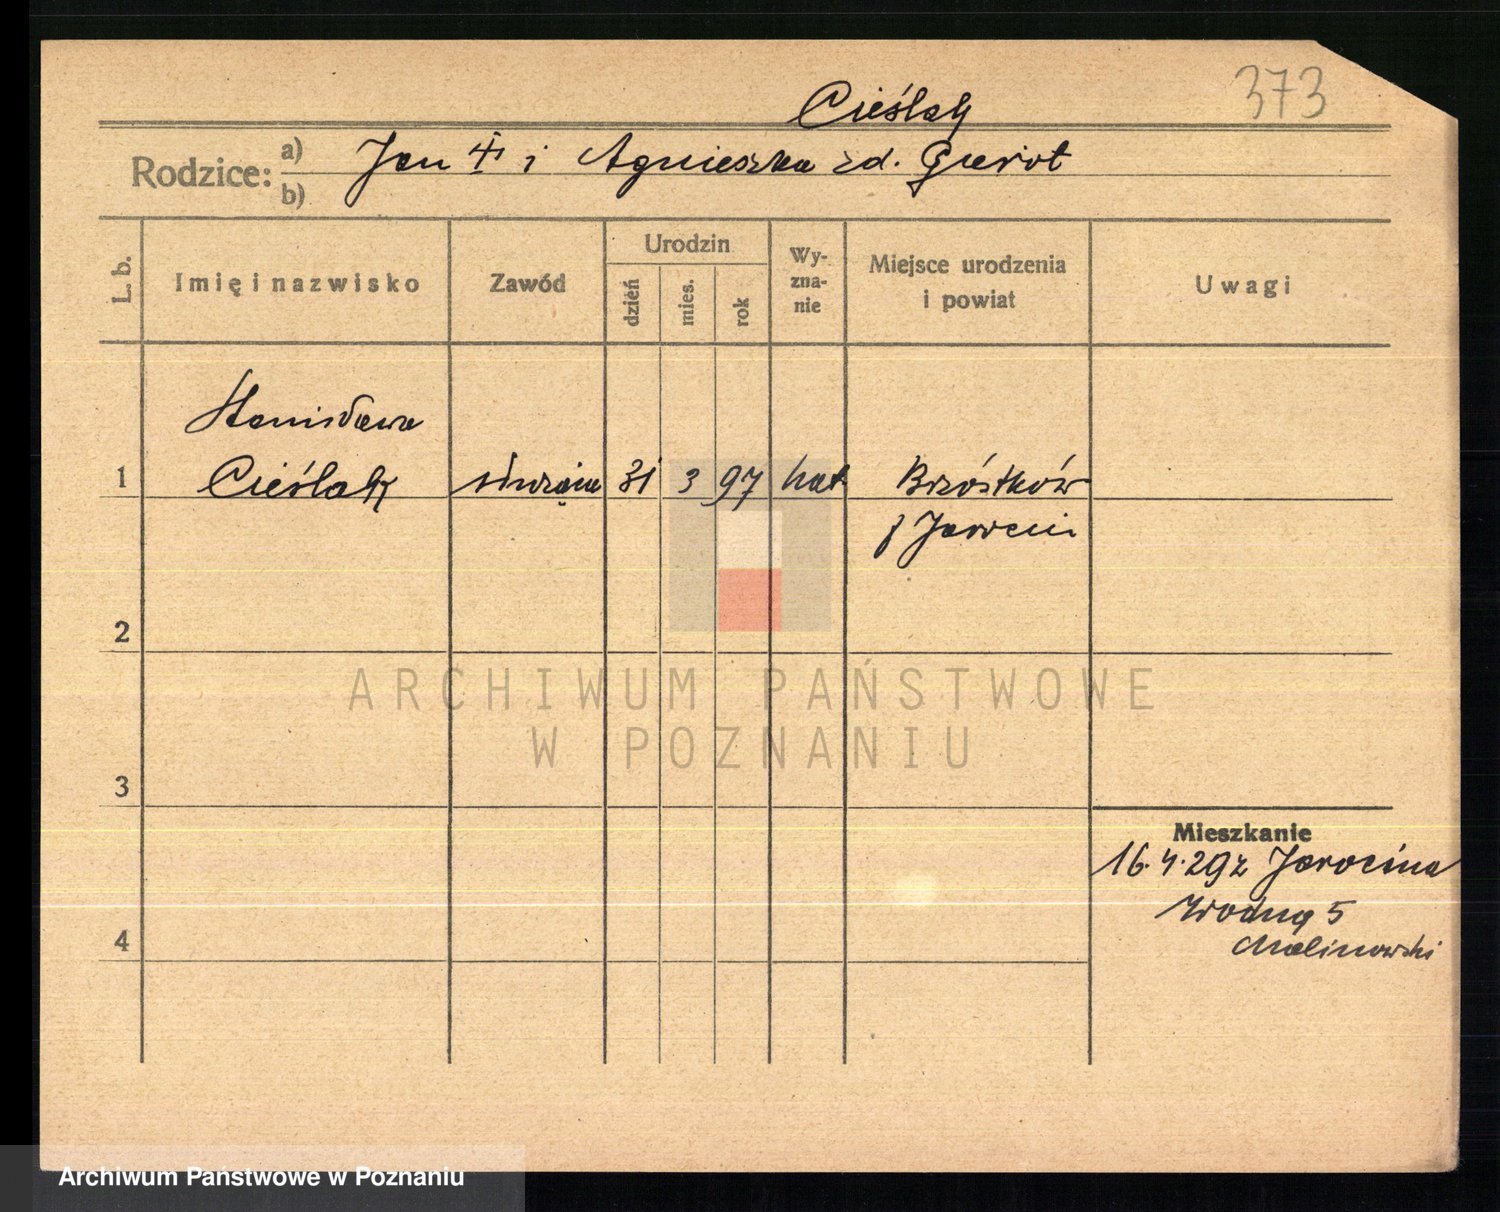 373
Cieślak
Rodzice: a) b) Jan i Agnieszka zd. Gierot
L. b. Imię i nazwisko Zawód Urodzin dzień mies. rok Wy-zna-nie Miejsce urodzenia i powiat Uwagi
Stanisława
1 Cieślak służąca 31 3 97 kat Brzóstków
p Jarocin
2
ARCHIWUM PAŃSTWOWE
W POZNANIU
3
Mieszkanie
16.4.29 z Jarocina
Wodna 5
4 Malinowski
Archiwum Państwowe w Poznaniu